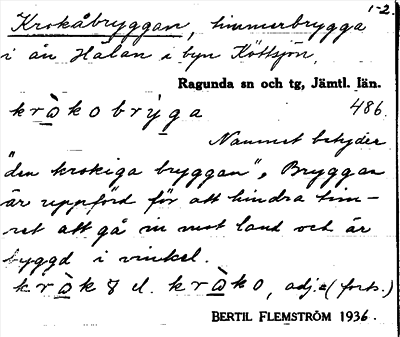 1-2.
Krokåbryggan, timmerbrygga
i ån Hålan i byn Köttsjön,
Ragunda sn och tg, Jämtl. län.
kràkobrỳga 486.
Namnet betyder
"den krokiga bryggan", Bryggan
är uppförd för att hindra tim-
ret att gå in mot land och är
byggd i vinkel.
kràk 8 el. kràko, adj. (forts.)
BERTIL FLEMSTRÖM 1936.